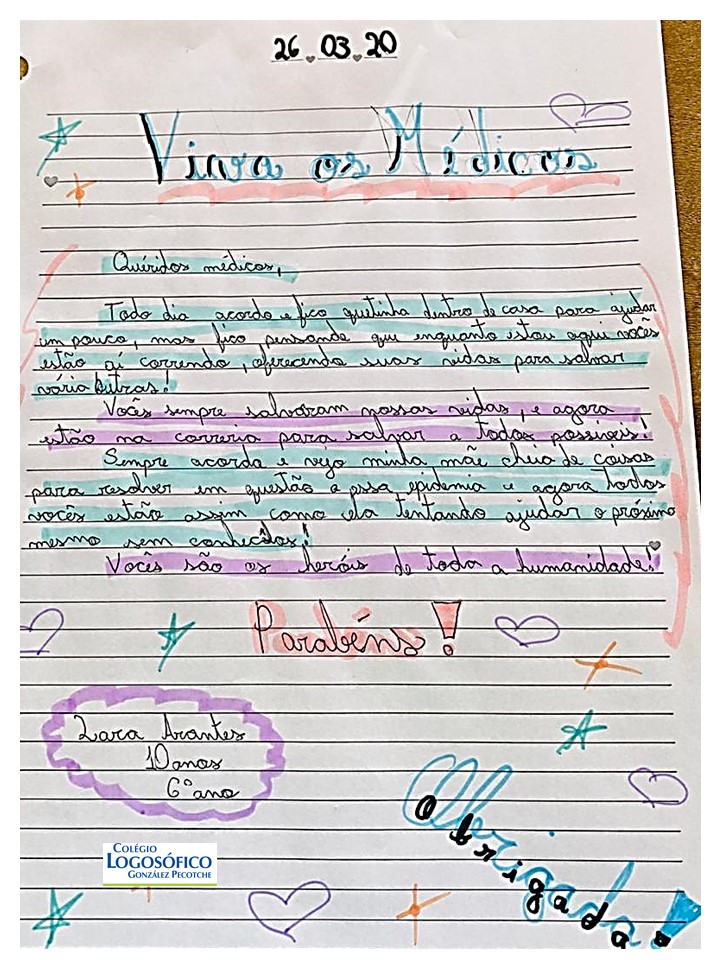 26.03.20
Viva os Médicos
Quéridos médicos,
Todo dia acordo e fico quetinha dentro de casa para ajudar
um pouco, mas fico pensando que enquanto estou aqui vocês
estão aí correndo, oferecendo suas vidas para salvar
varia outras!
Vocês sempre salvaram nossas vidas, e agora
estão na correria para salvar a todos possíveis!
Sempre acordo e vejo minha mãe cheia de coisas
para resolver em questão a essa epidemia e agora todos
vocês estão assim como ela tentando ajudar o próximo
mesmo sem conhecelos!
Vocês são os heróis de toda a humanidade!
Parabéns!
Lara Arantes
10 anos
6º ano
Obrigada!
COLÉGIO
LOGOSÓFICO
GONZÁLEZ PECOTCHE